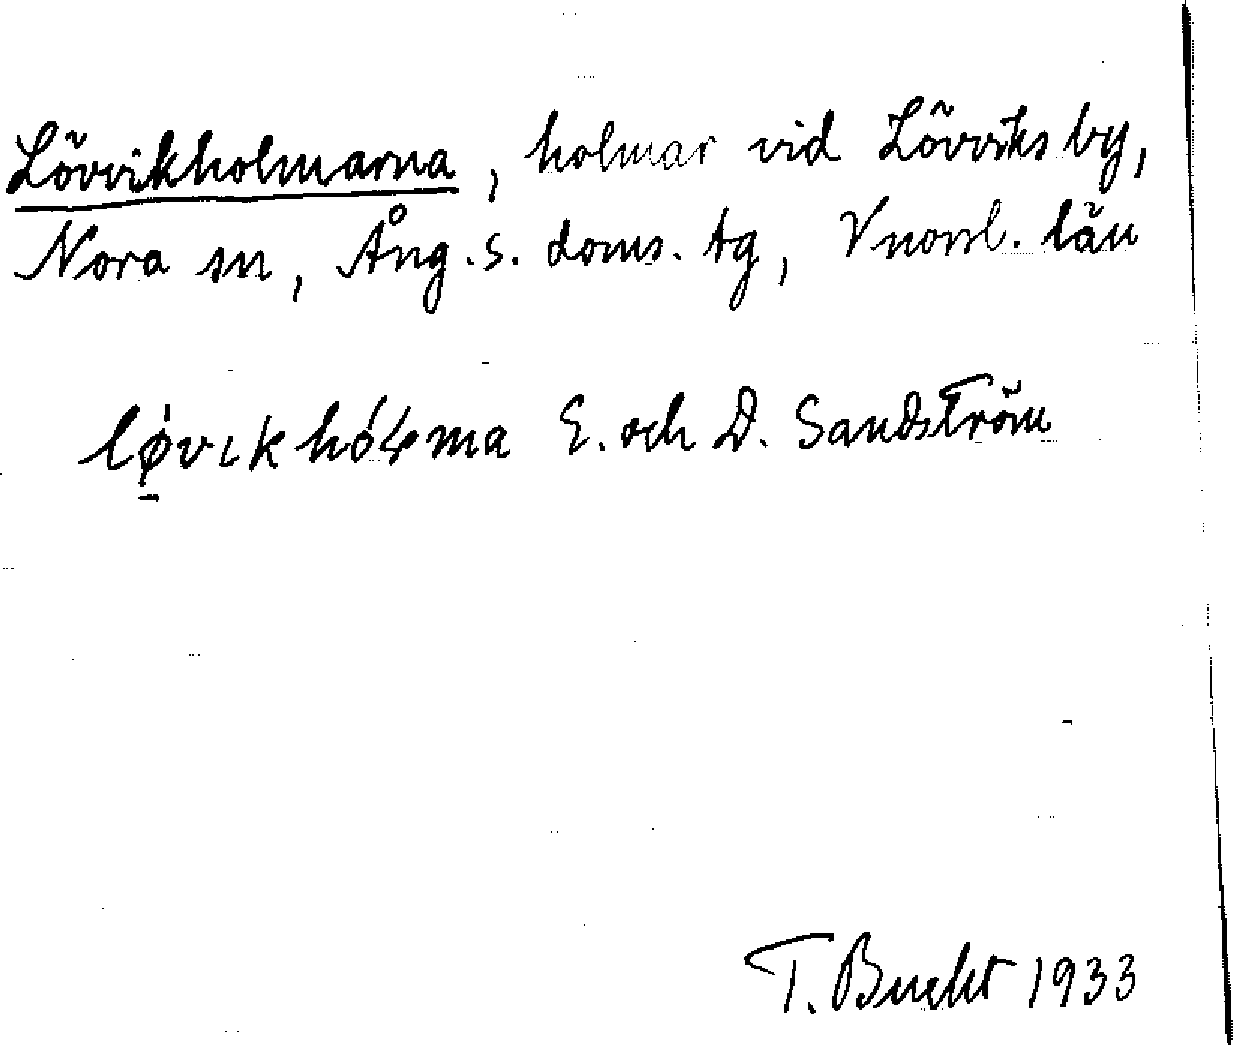 Lövvikholmarna, holmar vid Lövviks by,
Nora sn, Ång. s. doms. tg, Vnorrl. län
E. och D. Sandström
T. Bucht 1933